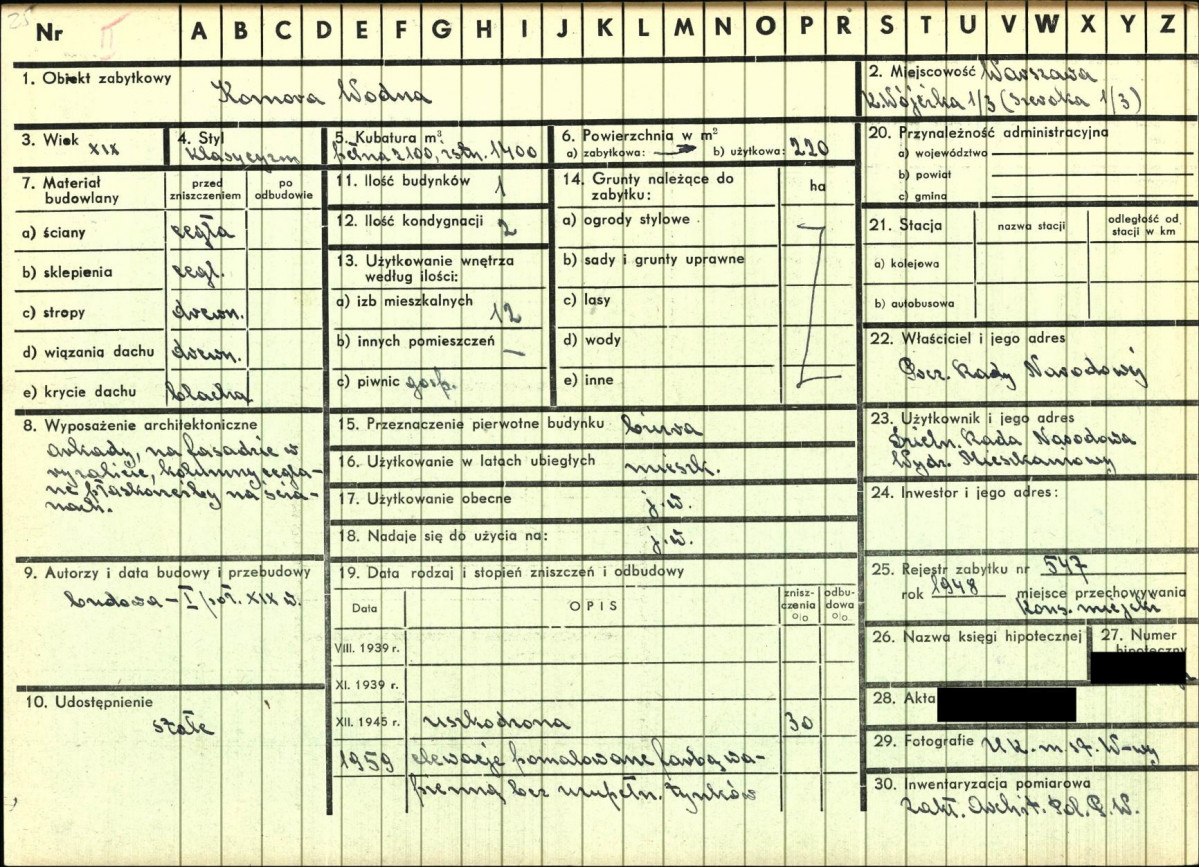 25
Nr II A B C D E F G H I J K L M N O P R S T U V W X Y Z
1. Obiekt zabytkowy Komora Wodna
2. Miejscowość Warszawa
K. Wójcika 1/3 (Szeroka 1/3)
3. Wiek XIX
4. Styl
Klasycyzm
5. Kubatura m³
pełna 2100, zab. 1400
6. Powierzchnia w m²
a) zabytkowa: — b) użytkowa: 220
20. Przynależność administracyjna
a) województwo
b) powiat
c) gmina
7. Materiał budowlany
przed zniszczeniem
po odbudowie
a) ściany cegła
b) sklepienia cegl.
c) stropy drewn.
d) wiązania dachu drewn.
e) krycie dachu blacha
11. Ilość budynków 1
12. Ilość kondygnacji 2
13. Użytkowanie wnętrza
według ilości:
a) izb mieszkalnych 12
b) innych pomieszczeń —
c) piwnic gosp.
14. Grunty należące do
zabytku: ha
a) ogrody stylowe
b) sady i grunty uprawne
c) lasy
d) wody
e) inne
21. Stacja
nazwa stacji
odległość od
stacji w km
a) kolejowa
b) autobusowa
22. Właściciel i jego adres
Prez. Rady Narodowej
23. Użytkownik i jego adres
Dzieln. Rada Narodowa
Wydz. Mieszkaniowy
24. Inwestor i jego adres:
8. Wyposażenie architektoniczne
arkady, na fasadzie w
ryzalicie, kolumny, cegla-
ne płaskorzeźby na ścia-
nach.
15. Przeznaczenie pierwotne budynku biura
16. Użytkowanie w latach ubiegłych mieszk.
17. Użytkowanie obecne j.w.
18. Nadaje się do użycia na: j.w.
9. Autorzy i data budowy i przebudowy
budowa – I poł. XIX w.
10. Udostępnienie
stałe
19. Data rodzaj i stopień zniszczeń i odbudowy
Data
OPIS
znisz-
czenia
%
odbu-
dowa
%
VIII. 1939 r.
XI. 1939 r.
XII. 1945 r. uszkodzona 30
1959 elewacje pomalowane farbą wa-
pienną bez uzupełn. tynków
25. Rejestr zabytku nr 547
rok 1948 miejsce przechowywania
Kons. miejski
26. Nazwa księgi hipotecznej
27. Numer
hipoteczny
28. Akta
29. Fotografie U.K. m. st. W-wy
30. Inwentaryzacja pomiarowa
Zakł. Archit. Pol. P.W.